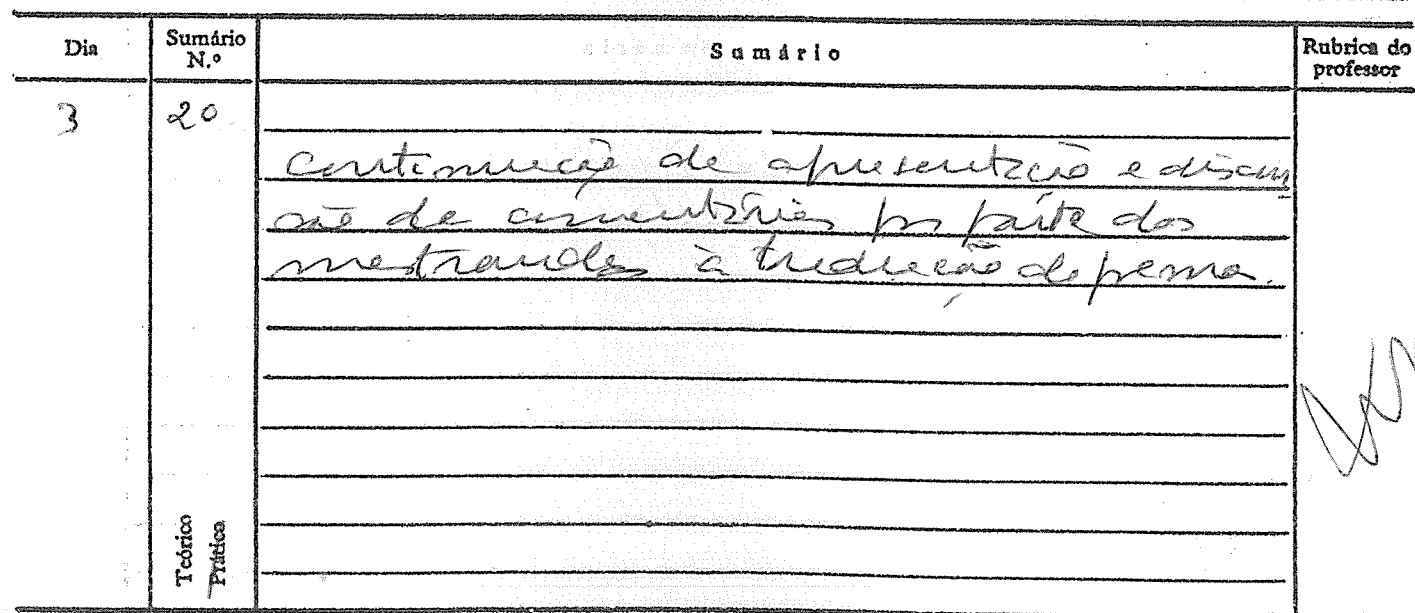 Dia Sumário N.º Sumário Rubrica do professor
3 20
continuação de apresentação e discus
são de comentários por parte dos
mestrandos à tradução de poemas.
Teórico
Prático